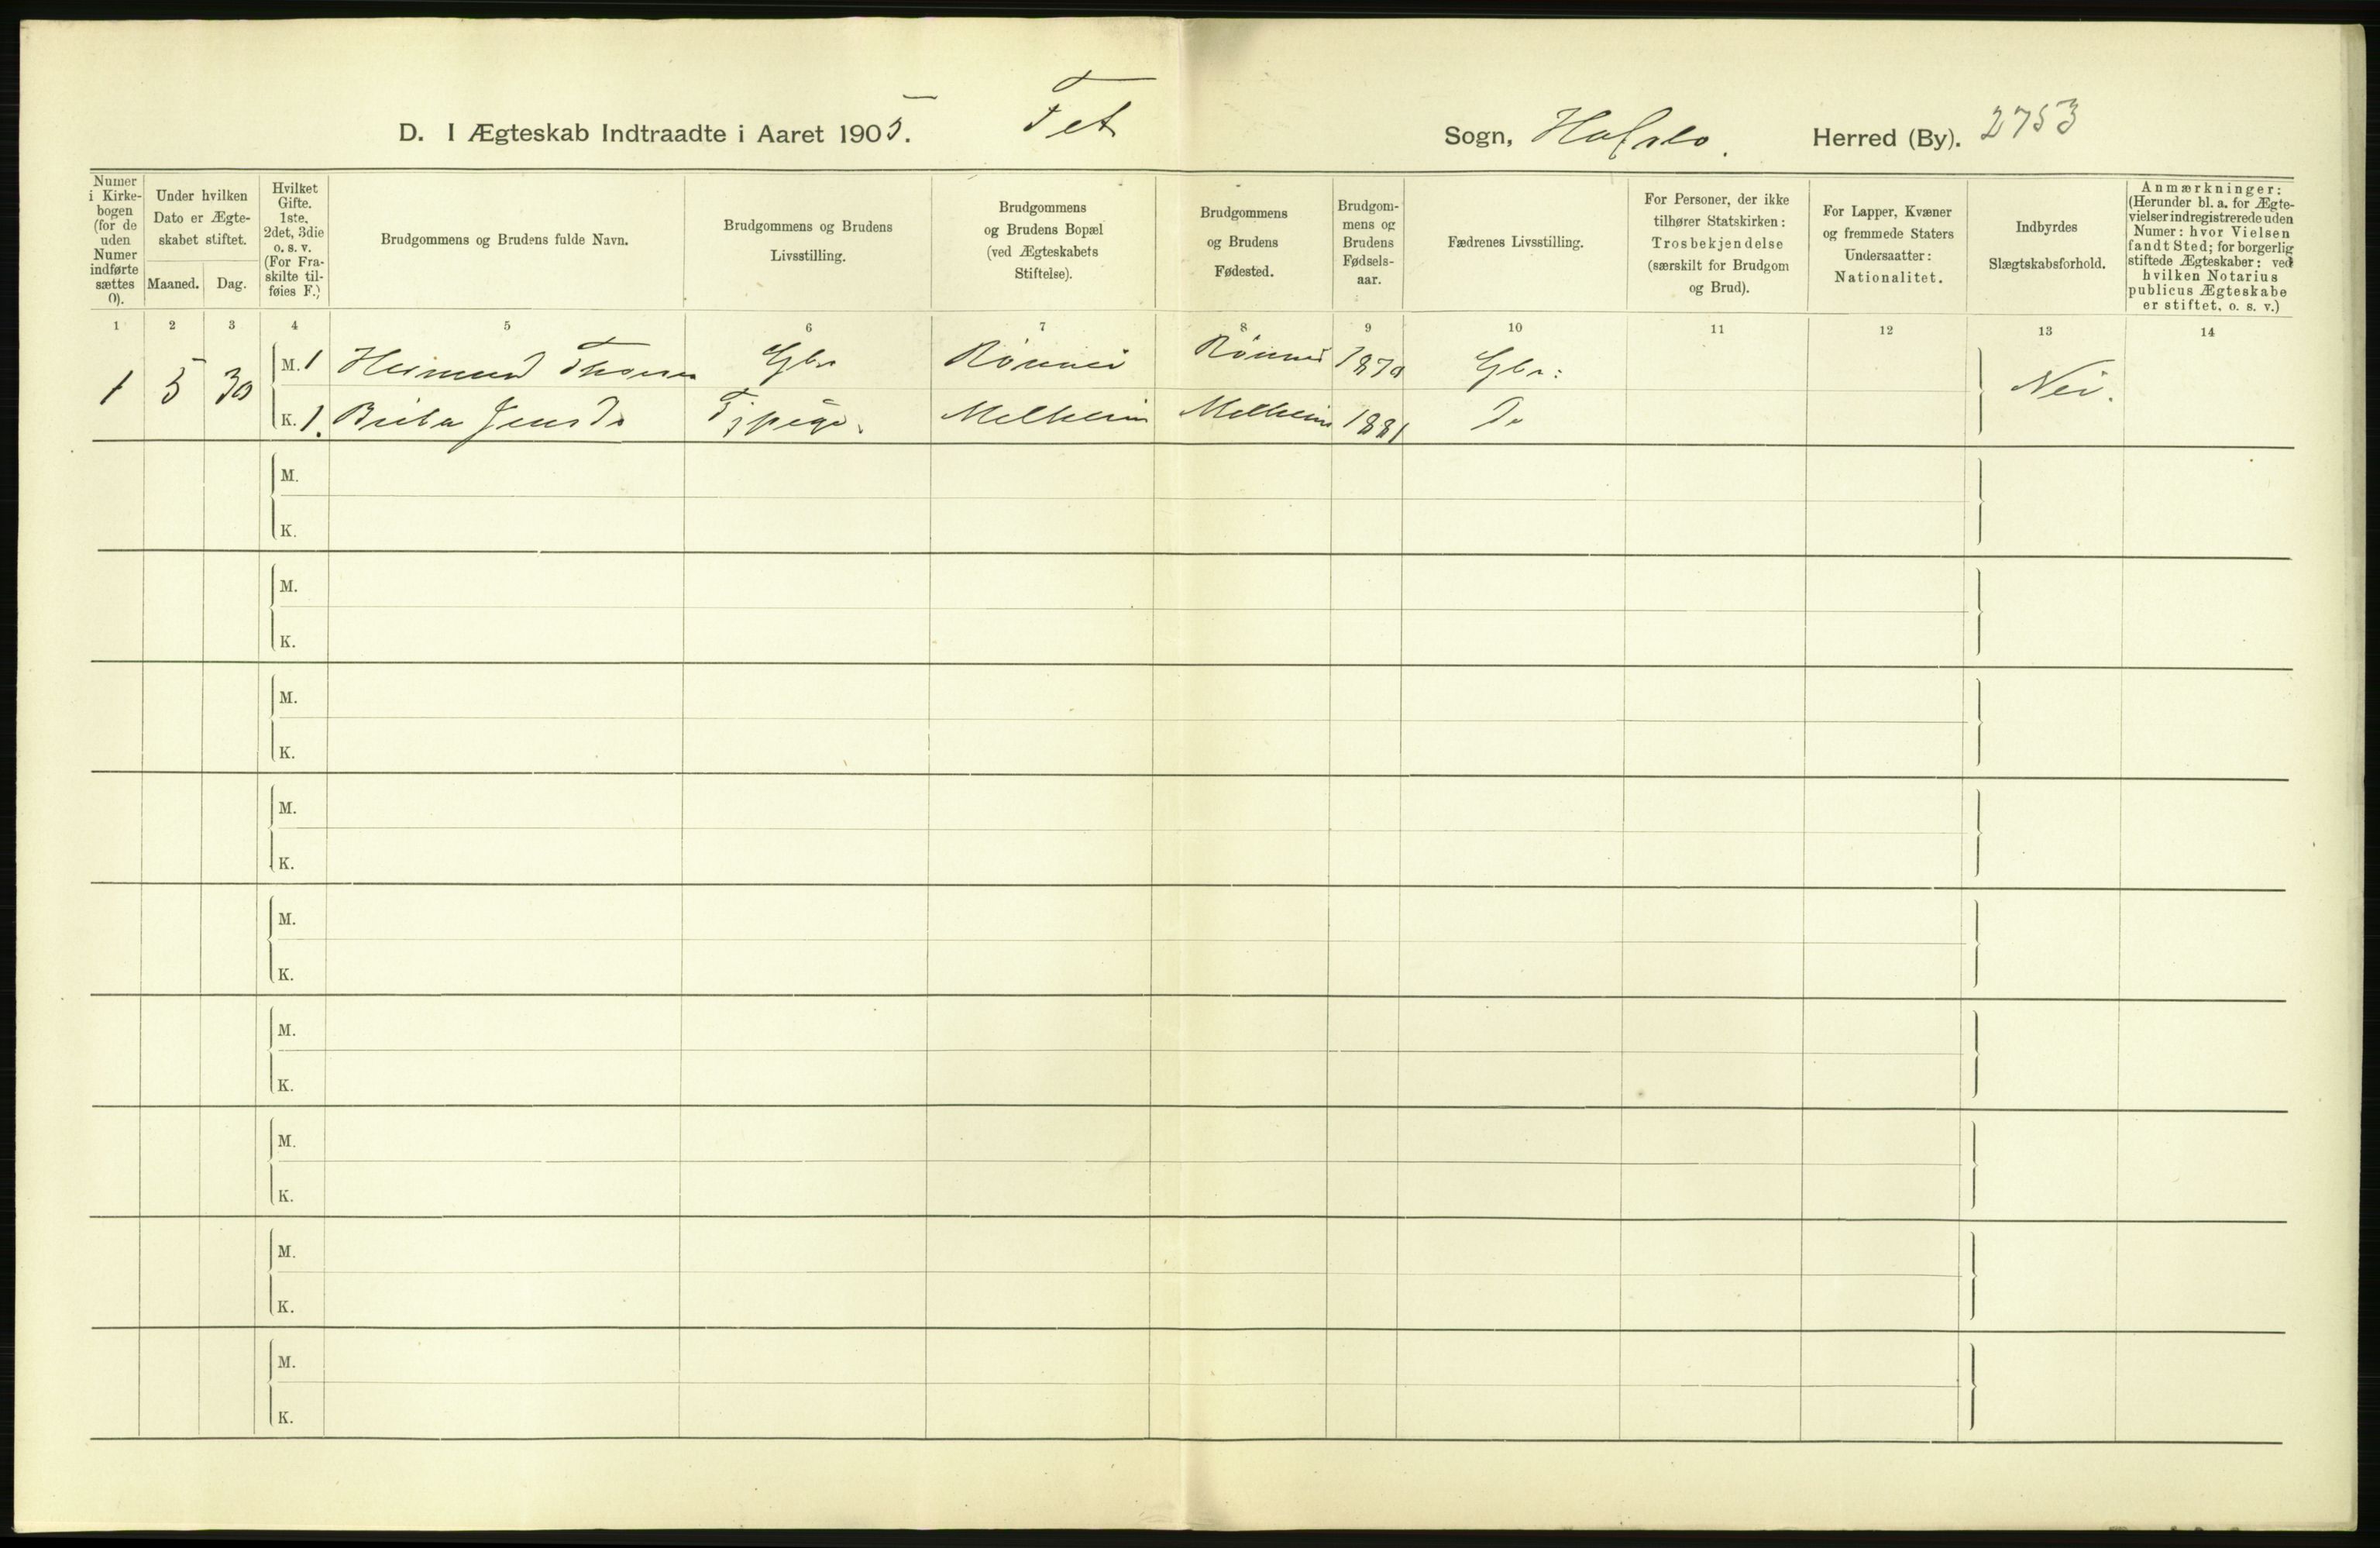 D. I Ægteskab Indtraadte i Aaret 1905. Fet Sogn, Hafslo. Herred (By). 2753
Numer i Kirkebogen (for de uden Numer indførte sættes 0).
Under hvilken Dato er Ægteskabet stiftet.
Maaned. Dag.
Hvilket Gifte. 1ste, 2det, 3die o. s. v. (For Fraskilte tilføies F.)
Brudgommens og Brudens fulde Navn.
Brudgommens og Brudens Livsstilling.
Brudgommens og Brudens Bopæl (ved Ægteskabets Stiftelse).
Brudgommens og Brudens Fødested.
Brudgommens og Brudens Fødselsaar.
Fædrenes Livsstilling.
For Personer, der ikke tilhører Statskirken: Trosbekjendelse (særskilt for Brudgom og Brud).
For Lapper, Kvæner og fremmede Staters Undersaatter: Nationalitet.
Indbyrdes Slægtskabsforhold.
Anmærkninger: (Herunder bl. a. for Ægtevielser indregistrerede uden Numer: hvor Vielsen fandt Sted; for borgerlig stiftede Ægteskaber: ved hvilken Notarius publicus Ægteskabe er stiftet. o. s. v.)
1 2 3 4 5 6 7 8 9 10 11 12 13 14
1 5 30 M. 1 Heimund Thoms Gbr Rønnei Rønnei 1870 Gbr: Nei.
K. 1. Jens D Tj pige. Melheim Melheim 1881 Do
M.
K.
M.
K.
M.
K.
M.
K.
M.
K.
M.
K.
M.
K.
M.
K.
M.
K.